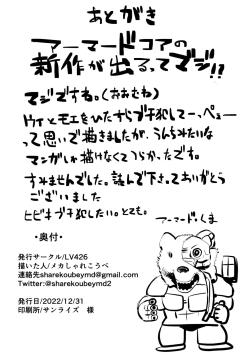 あとがき
アーマードコアの
新作が出るってマジ!?
マジですね。(おおむね)
って思いで描きましたが、うんちみたいな
マンガしか描けなくてつらかったです。
すみませんでした。読んで下さっておりがとう
ございました
アーマード・くま
・奥付・
発行サークル/LV426
描いた人/メカしゃれこうべ
連絡先sharekoubeymd@gmail.com
Twitter:@sharekoubeymd2
発行日/2022/12/31
印刷所/サンライズ 様